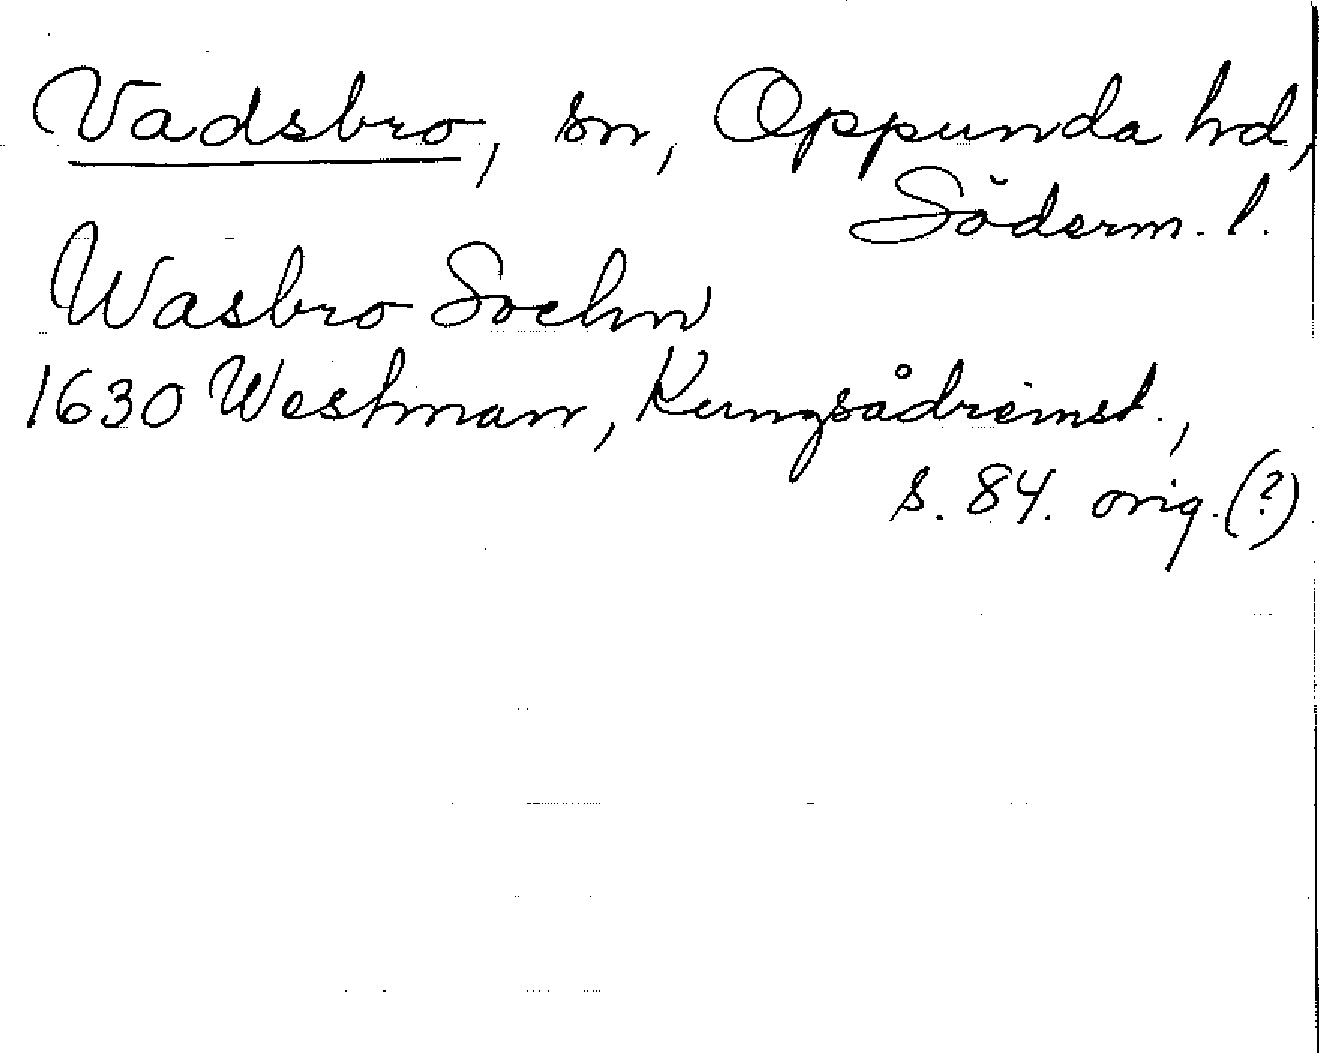 Vadsbro, sn, Oppunda hd,
Söderm. l.
Wasbro Sochn
1630 Westman, Kungsådreinst.,
s. 84. orig. (?)